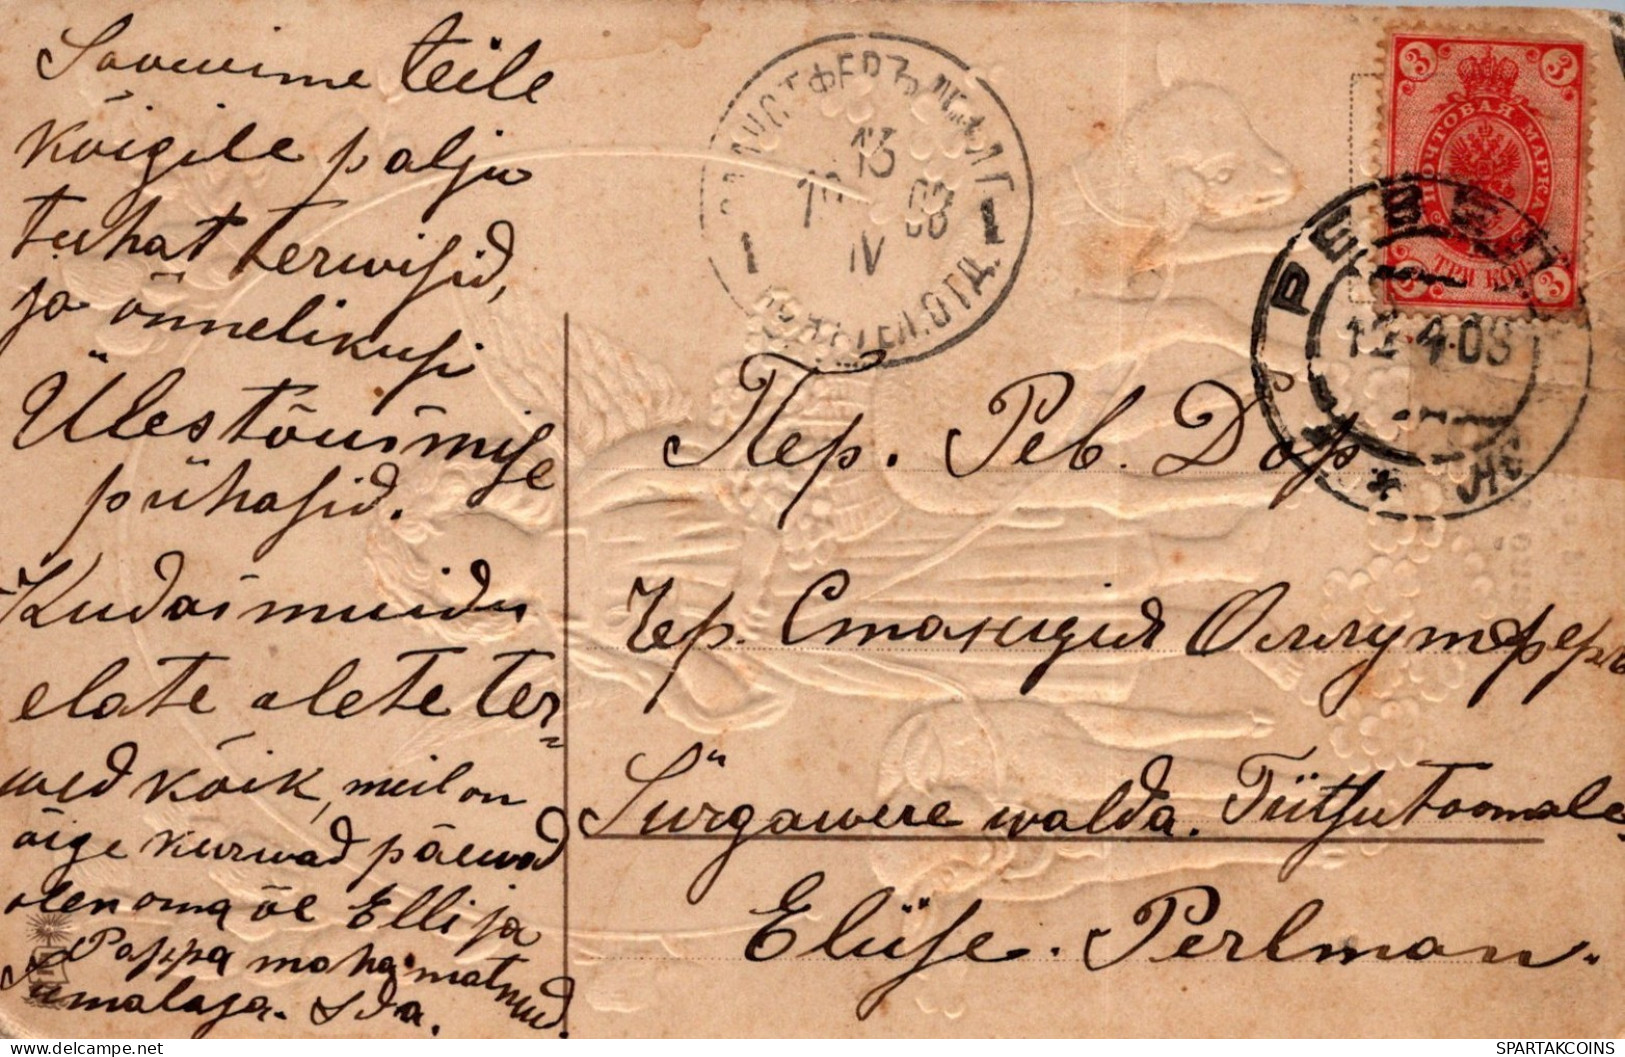 Soowime teile
kõigile palju
tuhat terwisid,
ja õnnelikusi
Ülestõusmise
pühasid.
Kudas muidu
elate olete ter=
wed kõik, meil on
õige kurwad päewad
olen oma õe Elli ja
Pappa maha matnud.
Jumalaga. Ida.
1 13 1
IV 08
ТЕЛ. ОТД.
3 3
ПОЧТОВАЯ МАРКА
ТРИ КОП.
3 3
РЕВЕЛЬ
12 4.08
Пер. Рев. Дор.
Чер. Станция Оллутферъ
Sürgawere walda. Tiitsu toomale
Eliise. Perlman.
SPARTAKCOINS